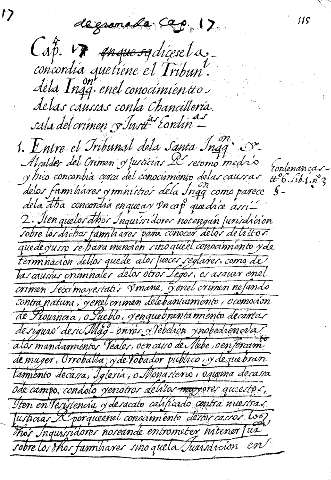 17
de granada Cap. 17.
115
Cap. 17 en que se dicese la
concordia que tiene el Tribunl.
dela Inqqon. en el conocimiento
de las caussas con la Chancilleria
sala del crimen y Justas. hordinas.
1. Entre el Tribunal dela Santa Inqqon. y
Alcaldes del Crimen y Justicias Rs. se tomo medio
y hiço concordia çerca del conocimiento de las caussas
delos familiares y ministros dela Inqqon. como pareçe
dela dha concordia en que ay Vn capo. que diçe assi
hordenanças
tto. 6. lib. 1. no. 2
§
2. Iten que los dhos Inquissidores no tengan Jurisdicion
sobre los dichos familiares para conocer delos delitos
que de yusso se hara mencion sino que el conocimiento y de
terminaçion dellos quede alos Jueces seglares como de
las caussas criminales delos otros legos, es a saver en el
crimen lessæ maiestatis Vmana, y en el crimen nefando
contra natura, y en el crimen de lebantamiento, o comocion
de Prouincia, o Pueblo, y en quebrantamiento de cartas
de siguro de su Magd. o nrro, y rebelion y nobediencia
alos mandamientos Reales, o en caso de Aleve, o en fuerça
de muger, o rroballa, y de robador publico, y de quebran
tamiento de casa, Iglesia, o Monasterio, o quema de casa
o de campo, con dolo y en otros delitos mayores que estos,
Iten en resistencia, y desacato calificado contra nuestras
Justicias Rs. porque en el conocimiento destos cassos los
dhos Inquissidores no se an de entrometer ni tener Jur
sobre los dhos familiares sino que la Jurisdicion en